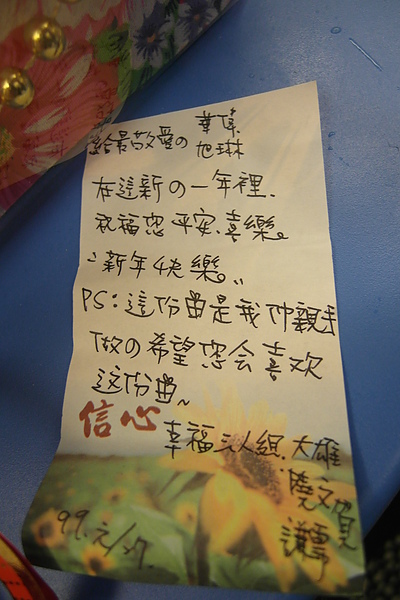 給最敬愛の 華偉、
旭琳
在這新の一年裡、
祝福您平安、喜樂。
"新年快樂"
PS:這份曲是我们親手
做の希望您会喜欢
这份曲~
信心
幸福三人組、大雄
曉文
99.2/27.